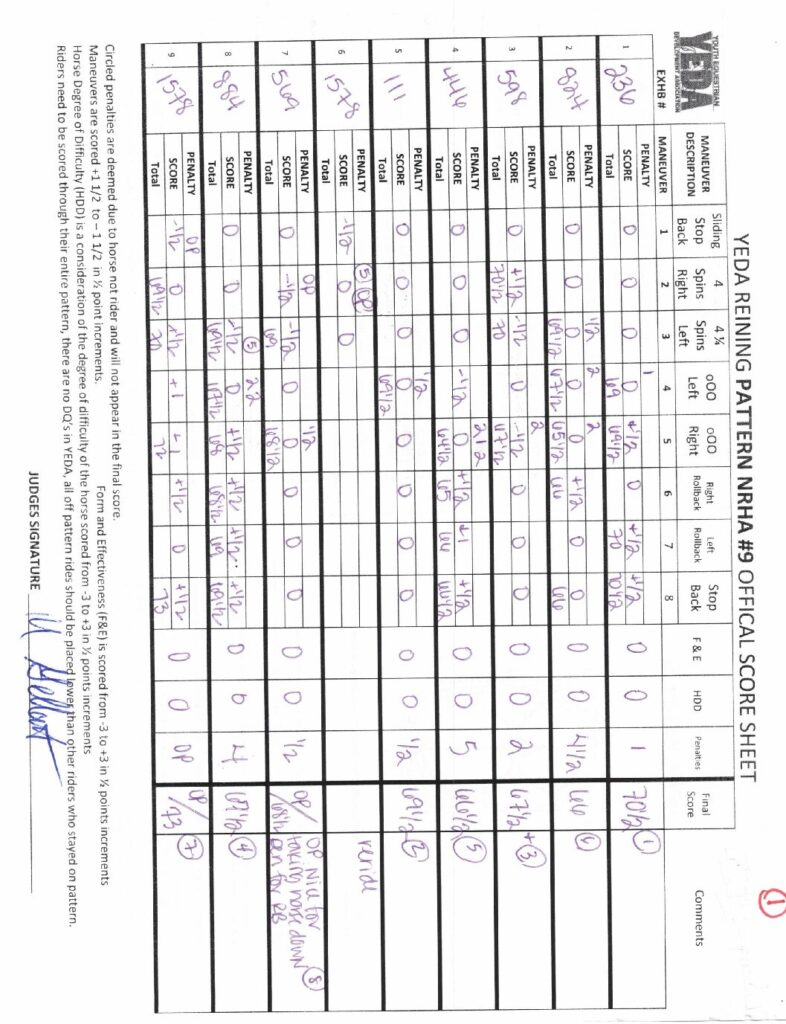 ①
YOUTH EQUESTRIAN
YEDA
DEVELOPMENT ASSOCIATION
YEDA REINING PATTERN NRHA #9 OFFICAL SCORE SHEET
EXHB # MANEUVER DESCRIPTION Sliding Stop Back 4 Spins Right 4 ¼ Spins Left oOO Left oOO Right Right Rollback Left Rollback Stop Back F & E HDD Penalties Final Score Comments
MANEUVER 1 2 3 4 5 6 7 8
1 236 PENALTY 1
SCORE 0 0 0 0 +1/2 0 +1/2 +1/2 0 0 1 70 1/2 ①
Total 69 69 1/2 70 70 1/2
2 824 PENALTY 1/2 2 2
SCORE 0 0 0 0 0 +1/2 0 0 0 0 4 1/2 66 ⑥
Total 69 1/2 67 1/2 65 1/2 66 66
3 598 PENALTY 2
SCORE 0 +1/2 -1/2 0 -1/2 0 0 0 0 0 2 67 1/2 + ③
Total 70 1/2 70 67 1/2
4 446 PENALTY 2 1/2 2
SCORE 0 0 0 -1/2 0 +1/2 +1 +1/2 0 0 5 66 1/2 ⑤
Total 64 1/2 65 66 66 1/2
5 111 PENALTY 1/2
SCORE 0 0 0 0 0 0 0 0 0 0 1/2 69 1/2 ②
Total 69 1/2
6 1578 PENALTY ⑤ OP
SCORE -1/2 0 0 reride
Total
7 569 PENALTY OP 1/2
SCORE 0 -1/2 -1/2 0 0 0 0 0 0 0 1/2 OP/ 68 1/2 OP Nice for taking horse down pen for RB ⑧
Total 69 68 1/2
8 884 PENALTY ⑤ 2 2
SCORE 0 0 -1/2 0 +1/2 +1/2 +1/2 +1/2 0 0 4 67 1/2 ④
Total 69 1/2 67 1/2 68 68 1/2 69 69 1/2
9 1578 PENALTY OP
SCORE -1/2 0 +1/2 +1 +1 +1/2 0 +1/2 0 0 OP OP/ 73 ⑦
Total 69 1/2 70 72 73
Circled penalties are deemed due to horse not rider and will not appear in the final score.
Maneuvers are scored +1 1/2 to – 1 1/2 in ½ point increments. Form and Effectiveness (F&E) is scored from -3 to +3 in ½ points increments
Horse Degree of Difficulty (HDD) is a consideration of the degree of difficulty of the horse scored from -3 to +3 in ½ points increments
Riders need to be scored through their entire pattern, there are no DQ's in YEDA, all off pattern rides should be placed lower than other riders who stayed on pattern.
JUDGES SIGNATURE